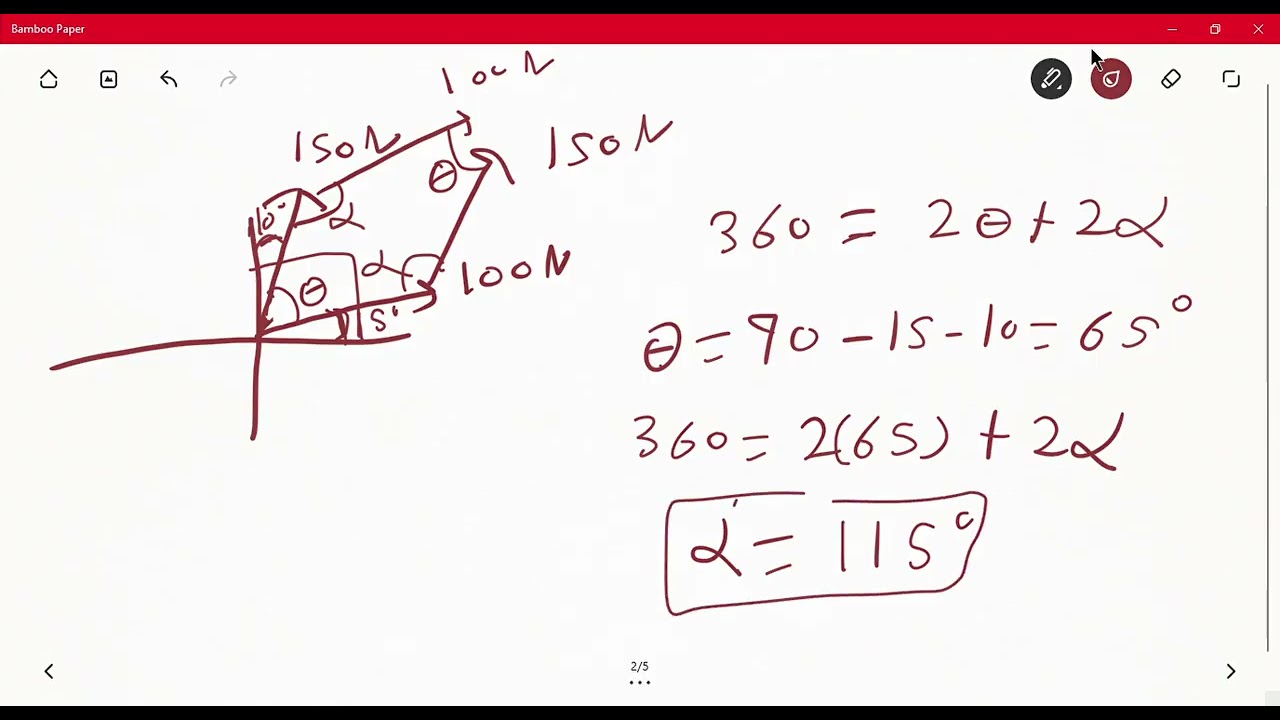 Bamboo Paper
100N
150N
150N
10°
α
θ
α
100N
θ
15°
360 = 2θ + 2α
θ = 90 - 15 - 10 = 65°
360 = 2(65) + 2α
α = 115°
2/5